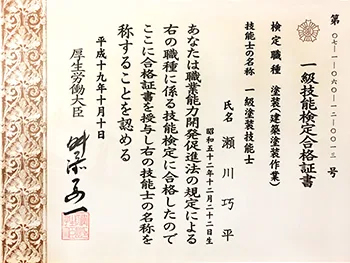 第０７－１－０６０－１２－００１３号
一級技能検定合格証書
検定職種　塗装（建築塗装作業）
技能士の名称　一級塗装技能士
氏名　瀬川巧平
昭和五十一年十二月二十二日生
あなたは職業能力開発促進法の規定による
右の職種に係る技能検定に合格したので
ここに合格証書を授与し右の技能士の名称を
称することを認める
平成十九年十月十日
厚生労働大臣